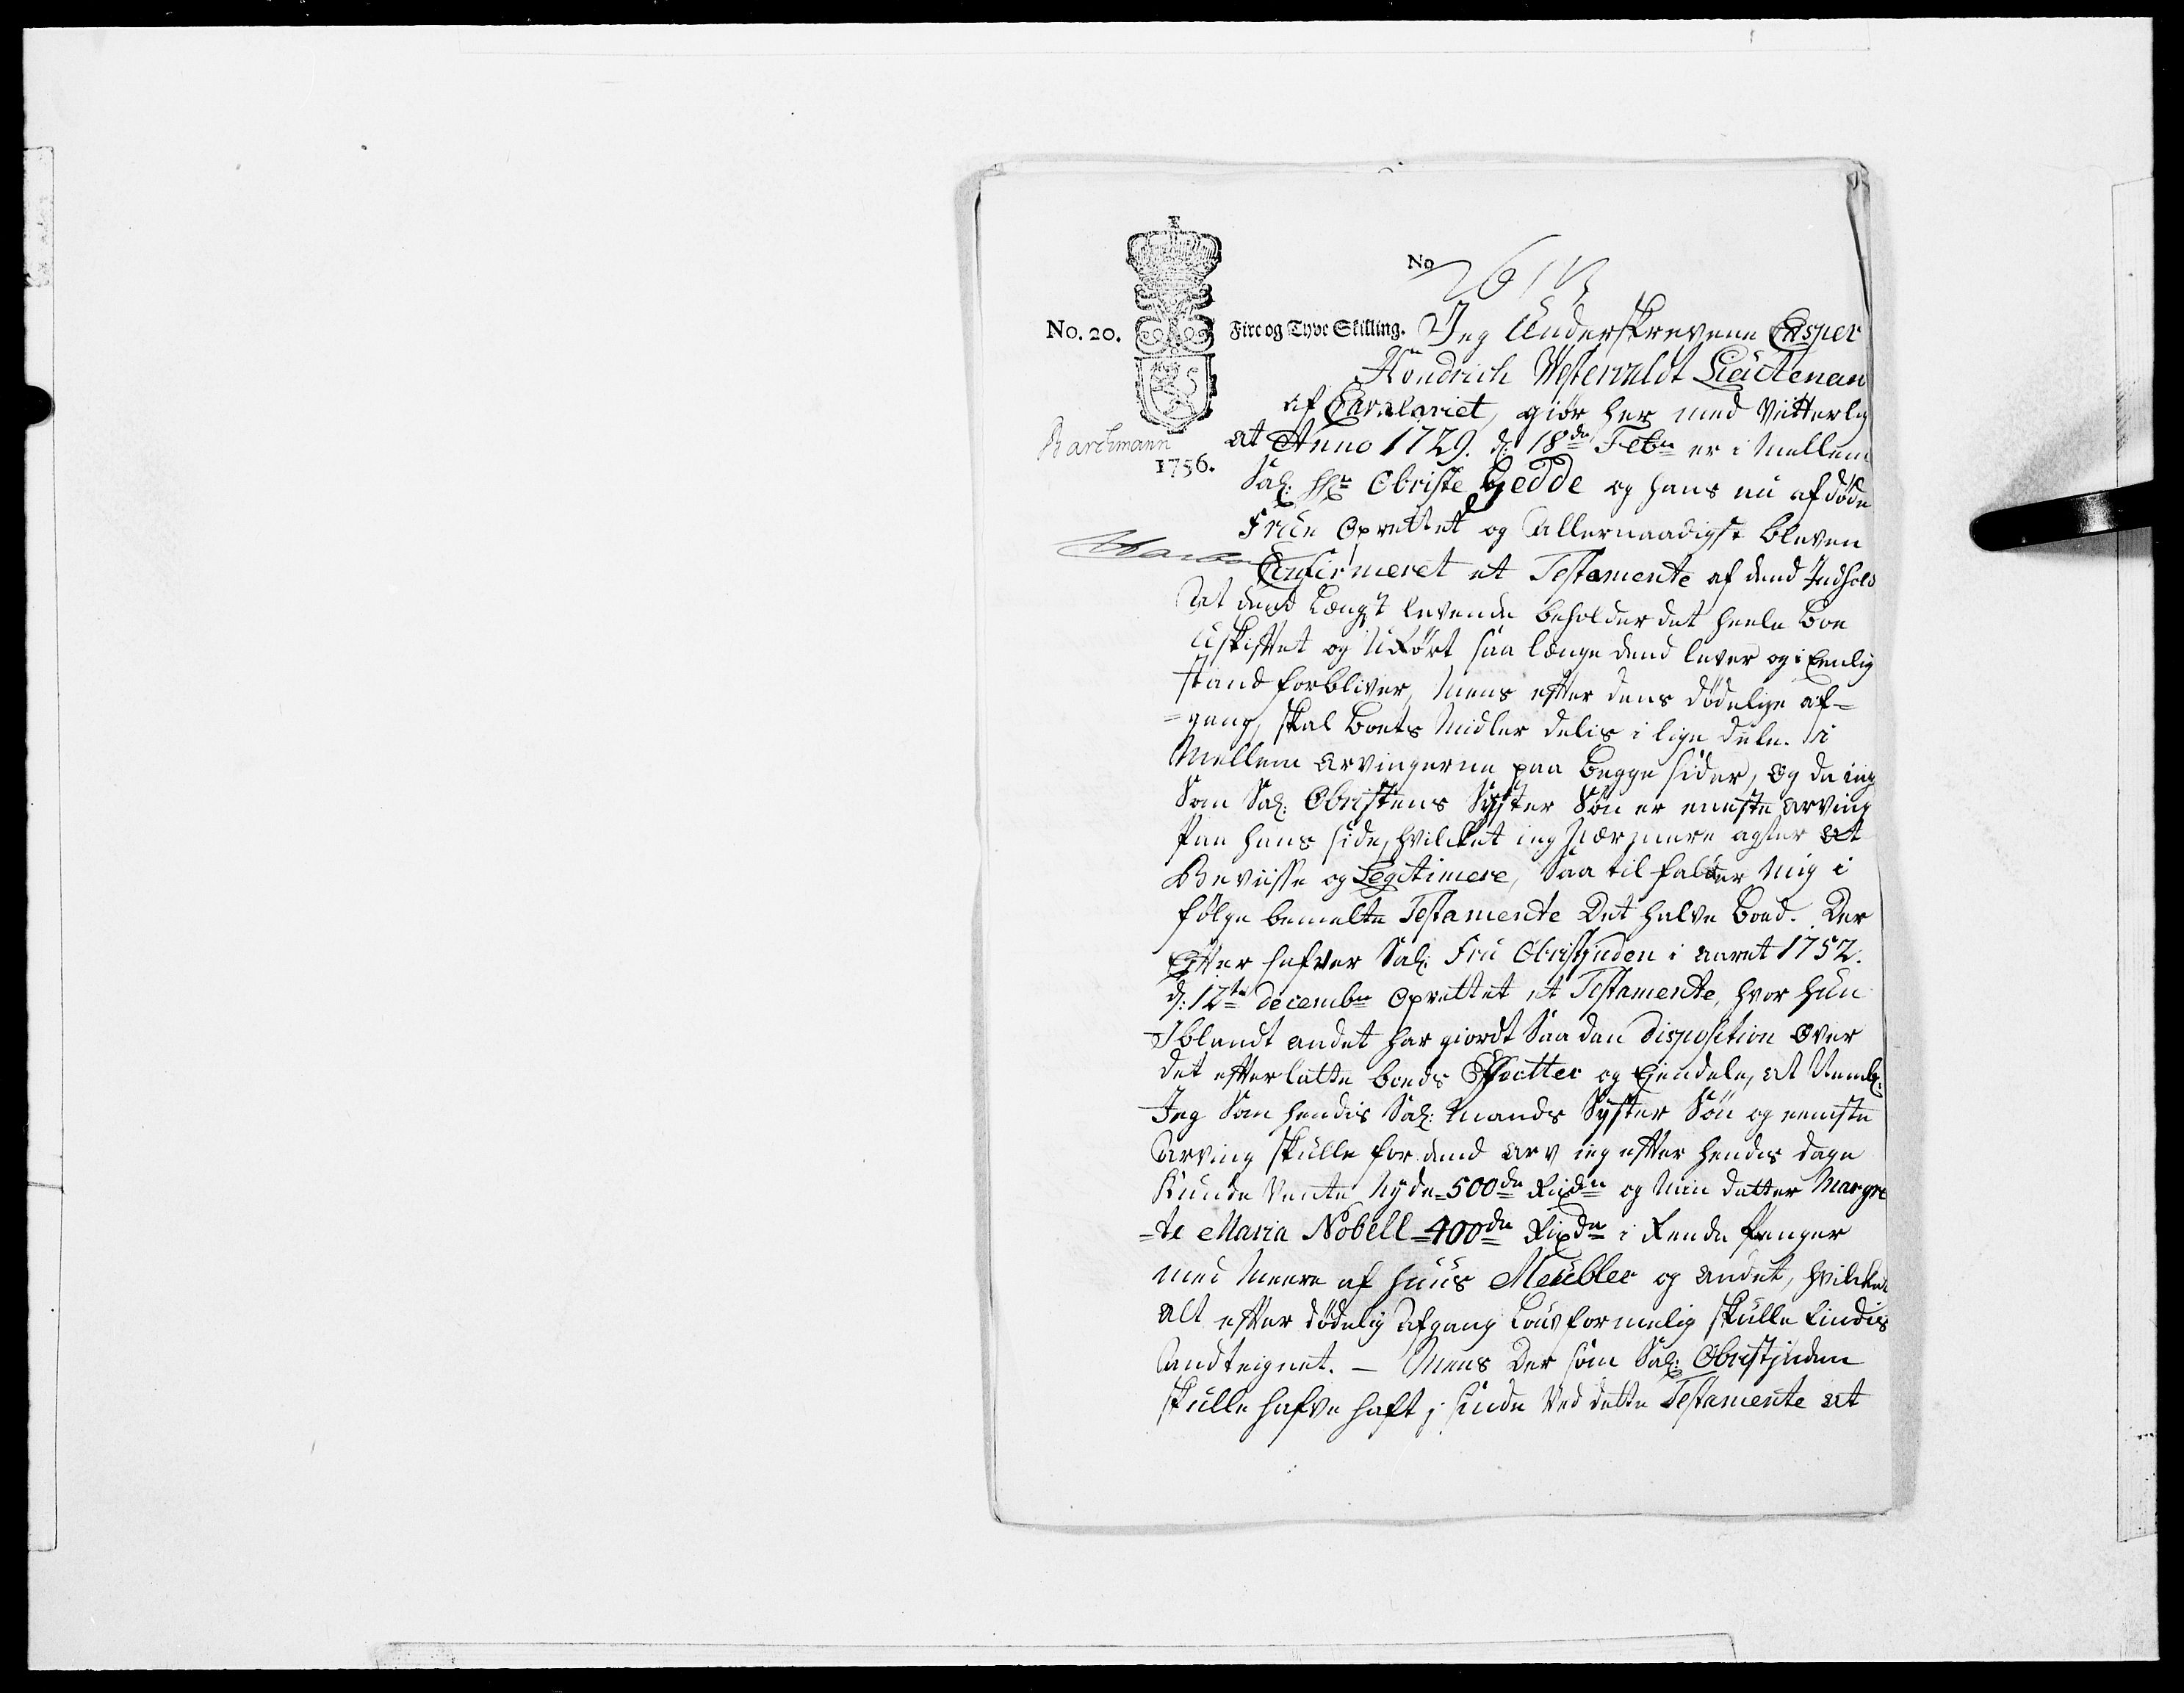 No
No. 20.
Fire og Tyve Skilling. Jeg Underskrevene Casper
Hendrich Westervaldt Lieutenan
af Cavalariet, giør her med Vitterlig
at Anno 1729. d: 18de Febr er i Mellem
Barchmann
1756.
Sal: Hr Obriste Gedde og hans nu afdøde
Frue Oprettet og Allernaadigst bleven
Confirmeret et Testamente af dend Indhold
At dend Længst levende beholder det heele Boe
Uskiftet og Urørt saa længe dend lever og i Eenlig
stand forbliver, Mens efter dens dødelige af-
=gang, skal Boets Midler delis i lige deele i
Mellem Arvingerne paa Begge sider, og da ieg
Som Sal: Obristens Syster Søn er eeneste arving
paa hans side, hvilcket ieg nærmere agter at
Beviisse og Legitimere, Saa til falder Mig i
følge bemelte Testamente Det halve Boed. Der
Efter hafver Sal: Fru Obristinden i aaret 1752.
d: 12te decembr Oprettet et Testamente, hvor hun
Iblandt andet har giordt Saadan disposition Over
det efterlatte boeds Effecter og Ejendele, at Neml:
Jeg Som hendis Sal: Mands Syster Søn og eeneste
Arving skulle for dend arv ieg efter hendes dage
Kunde Vente Nyde=500de Rixdr og Min datter Margre
=te Maria Nobell=400de Rixdr i Rende Penger
med Meere af huus Meubler og andet, hvilcket
alt efter dødelig Afgang Lovformelig skulle findis
Andteignet. — Mens Der som Sal: Obristinden
skulle hafve haft i sinde Ved dette Testamente at